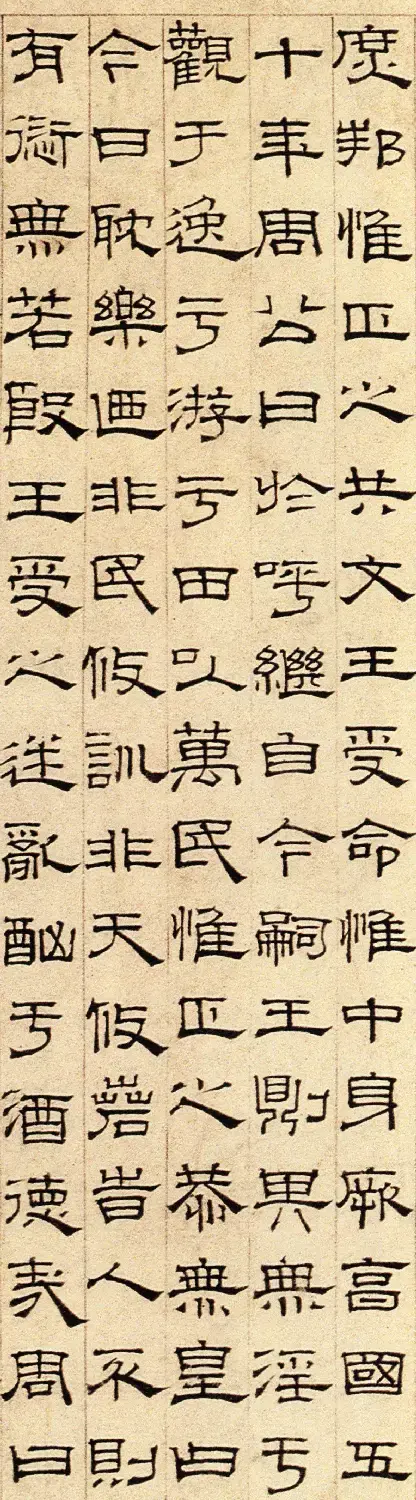 庶邦惟正之共文王受命惟中身厥享國五
十年周公曰於呼繼自今嗣王則其無淫于
觀于逸亏游亏田以萬民惟正之恭無皇曰
今日耽樂迺非民攸訓非天攸若旹人丕則
有愆無若殷王受之迷亂酗于酒德哉周曰